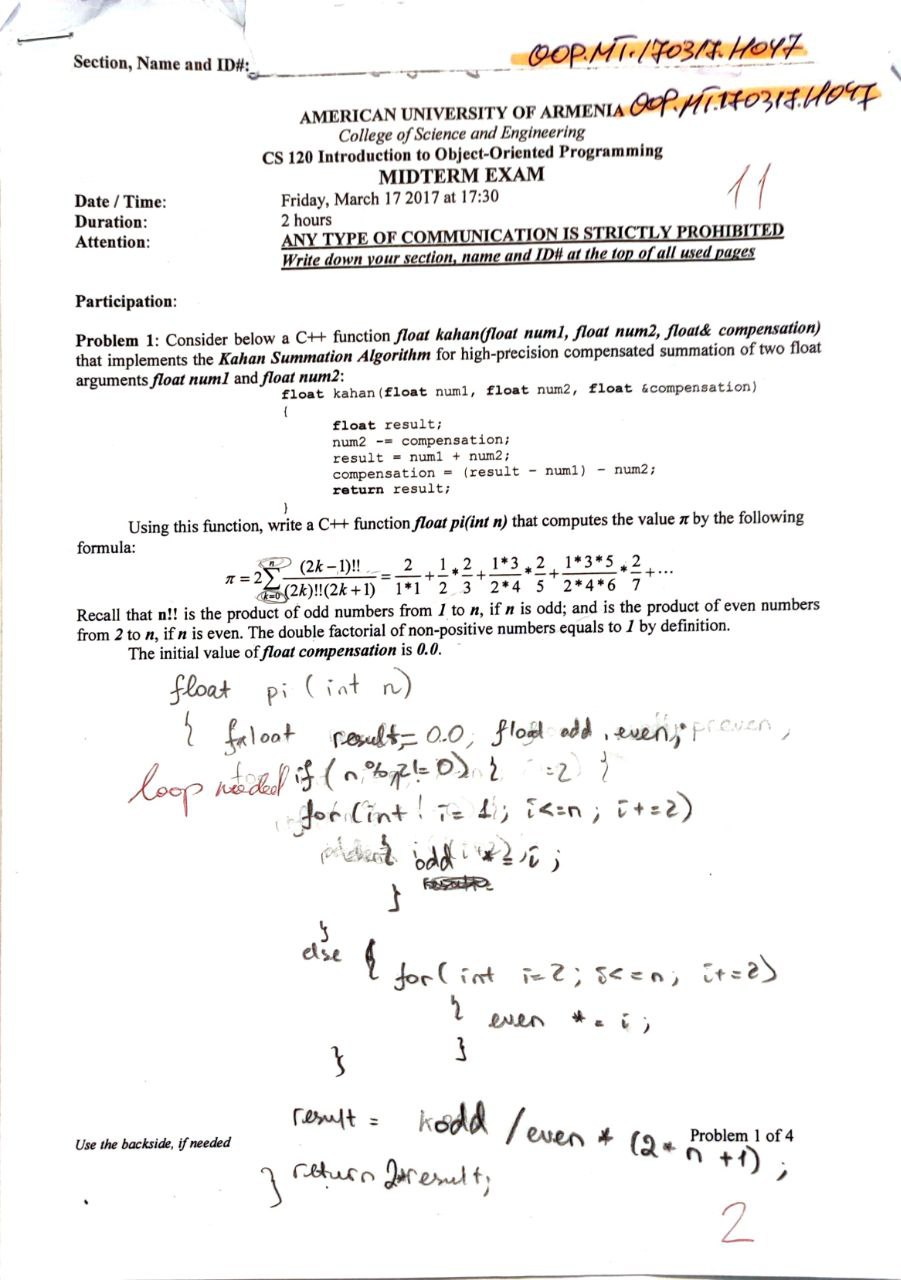 OOP.MT.170317.H047
Section, Name and ID#:
OOP.MT.170317.H047
AMERICAN UNIVERSITY OF ARMENIA
College of Science and Engineering
CS 120 Introduction to Object-Oriented Programming
MIDTERM EXAM
11
Date / Time: Friday, March 17 2017 at 17:30
Duration: 2 hours
Attention: ANY TYPE OF COMMUNICATION IS STRICTLY PROHIBITED
Write down your section, name and ID# at the top of all used pages
Participation:
Problem 1: Consider below a C++ function float kahan(float num1, float num2, float& compensation)
that implements the Kahan Summation Algorithm for high-precision compensated summation of two float
arguments float num1 and float num2:
float kahan(float num1, float num2, float &compensation)
{
float result;
num2 -= compensation;
result = num1 + num2;
compensation = (result - num1) - num2;
return result;
}
Using this function, write a C++ function float pi(int n) that computes the value π by the following
formula:
π = 2∑ n k=0 (2k−1)!! / (2k)!!(2k+1) = 2 / 1*1 + 1/2 * 2/3 + 1*3 / 2*4 * 2/5 + 1*3*5 / 2*4*6 * 2/7 + ···
Recall that n!! is the product of odd numbers from 1 to n, if n is odd; and is the product of even numbers
from 2 to n, if n is even. The double factorial of non-positive numbers equals to 1 by definition.
The initial value of float compensation is 0.0.
float pi (int n)
{ float result = 0.0, float odd, even;
loop needed if (n%2!=0) {
for (int i = 1; i<=n; i+=2)
{ odd *= i;
}
}
else {
for( int i=2; i<=n; i+=2)
{ even *= i;
}
}
result = odd / even * (2 * n +1);
Use the backside, if needed Problem 1 of 4
} return 2*result;
2